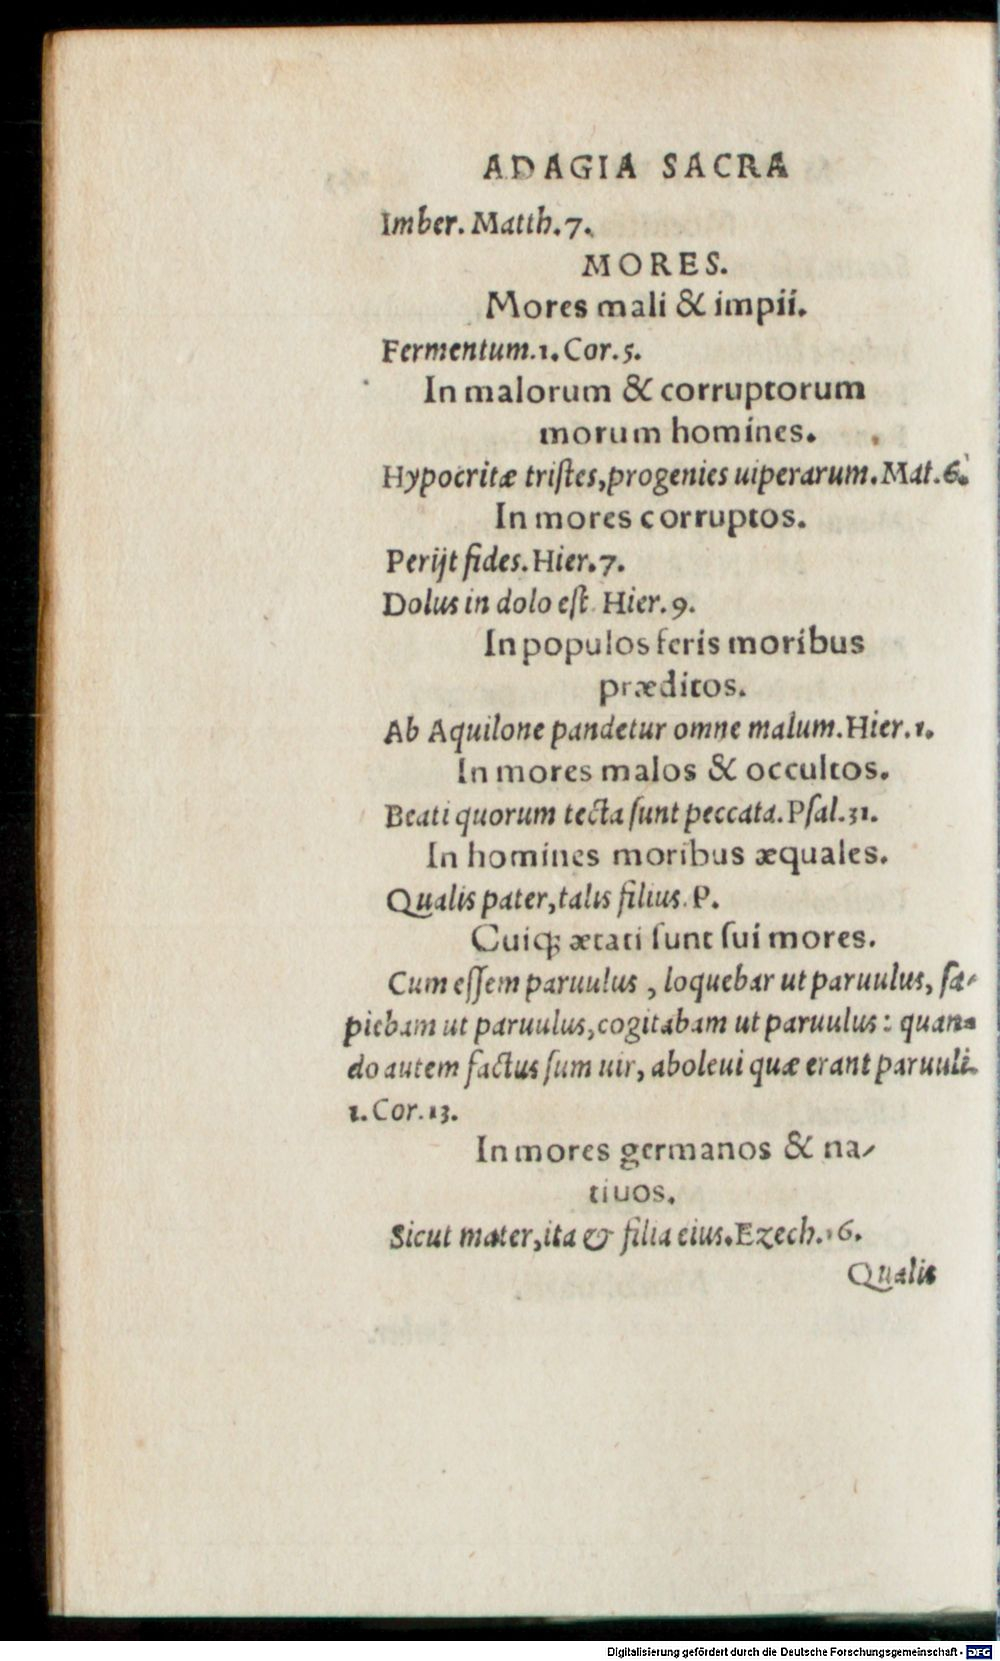 ADAGIA SACRA
Imber. Matth.7.
MORES.
Mores mali & impii.
Fermentum.1. Cor.5.
In malorum & corruptorum
morum homines.
Hypocritæ triſtes,progenies uiperarum.Mat.6.
In mores corruptos.
Perijt fides. Hier.7.
Dolus in dolo eſt Hier.9.
In populos feris moribus
præditos.
Ab Aquilone pandetur omne malum. Hier.1.
In mores malos & occultos.
Beati quorum tecta ſunt peccata. Pſal.31.
In homines moribus æquales.
Qualis pater,talis filius. P.
Cuiqꝫ ætati ſunt ſui mores.
Cum eſſem paruulus , loquebar ut paruulus, ſa-
piebam ut paruulus,cogitabam ut paruulus: quan-
do autem factus ſum uir, aboleui quæ erant paruuli.
1. Cor.13.
In mores germanos & na-
tiuos.
Sicut mater,ita & filia eius. Ezech.16.
Qualis
Digitalisierung gefördert durch die Deutsche Forschungsgemeinschaft - DFG